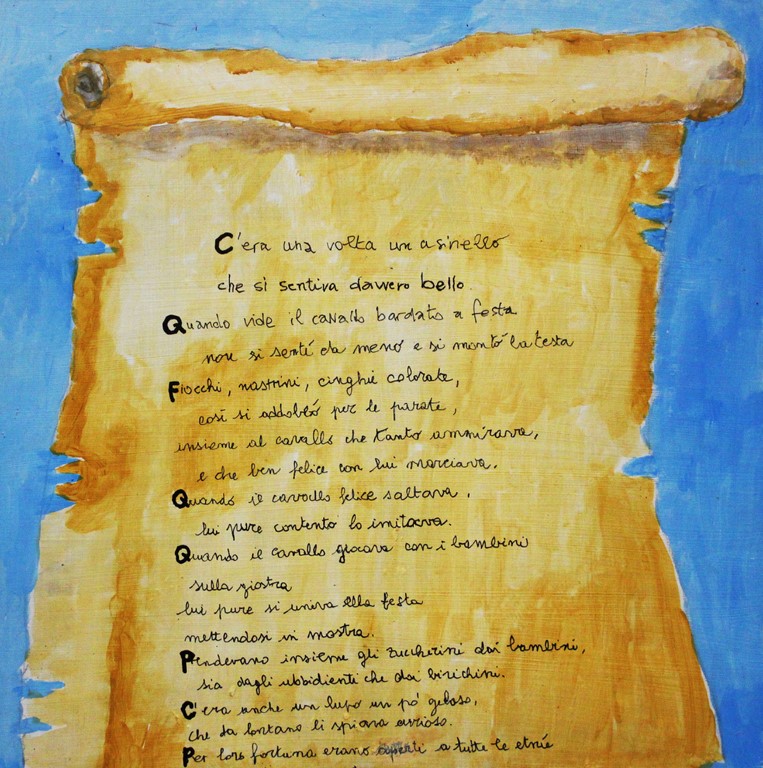 C'era una volta un asinello
che si sentiva davvero bello.
Quando vide il cavallo bardato a festa
non si sentì da meno e si montò la testa
Fiocchi, nastrini, cinghie colorate,
così si addobbò per le parate,
insieme al cavallo che tanto ammirava,
e che ben felice con lui marciava.
Quando il cavallo felice saltava,
lui pure contento lo imitava.
Quando il cavallo giocava con i bambini
sulla giostra
lui pure si univa alla festa
mettendosi in mostra.
Prendevano insieme gli zuccherini dai bambini,
sia dagli ubbidienti che dai birichini.
C'era anche un lupo un pò geloso,
che da lontano li spiava curioso.
Per loro fortuna erano aperti a tutte le etnie